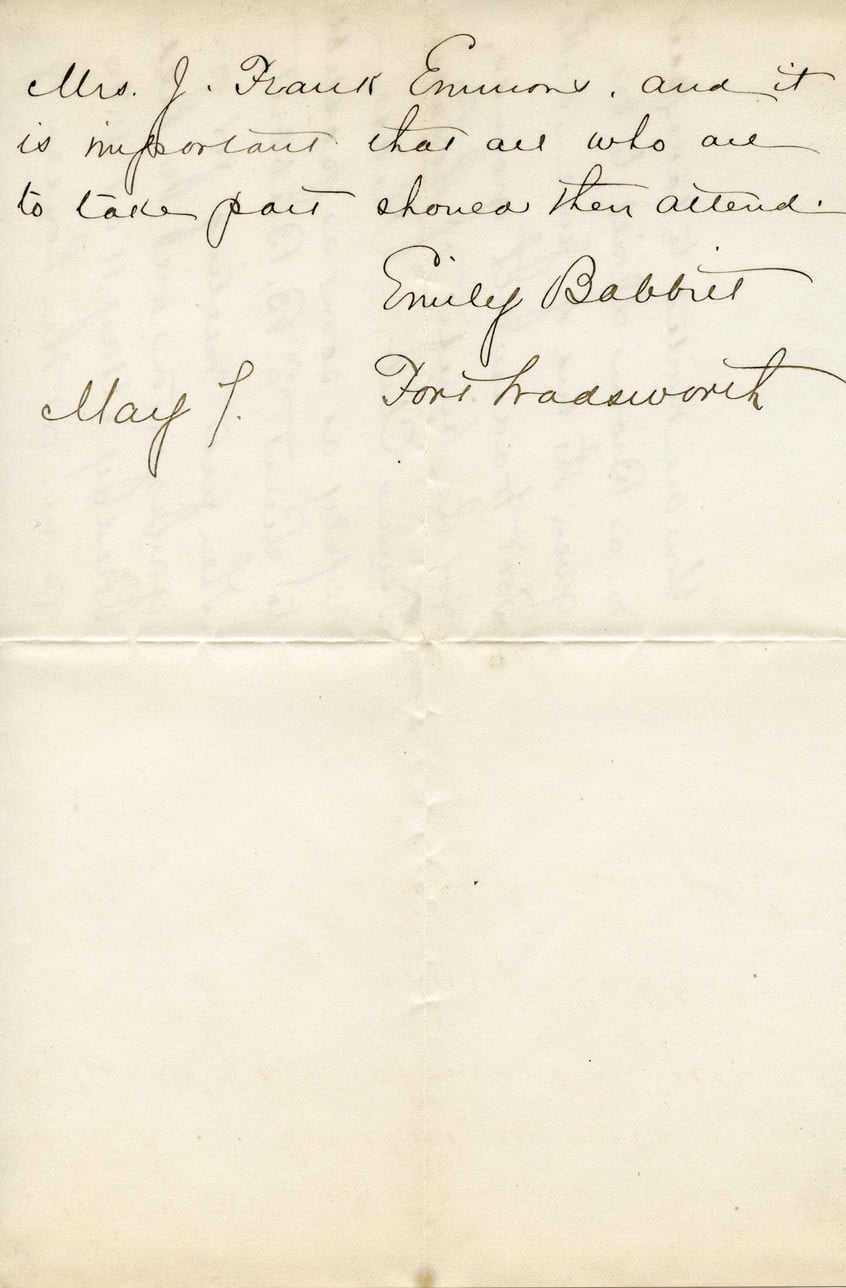 Mrs. J. Frank Emmons, and it
is important that all who are
to take part should then attend.
Emily Babbitt
Fort Wadsworth
May 7.